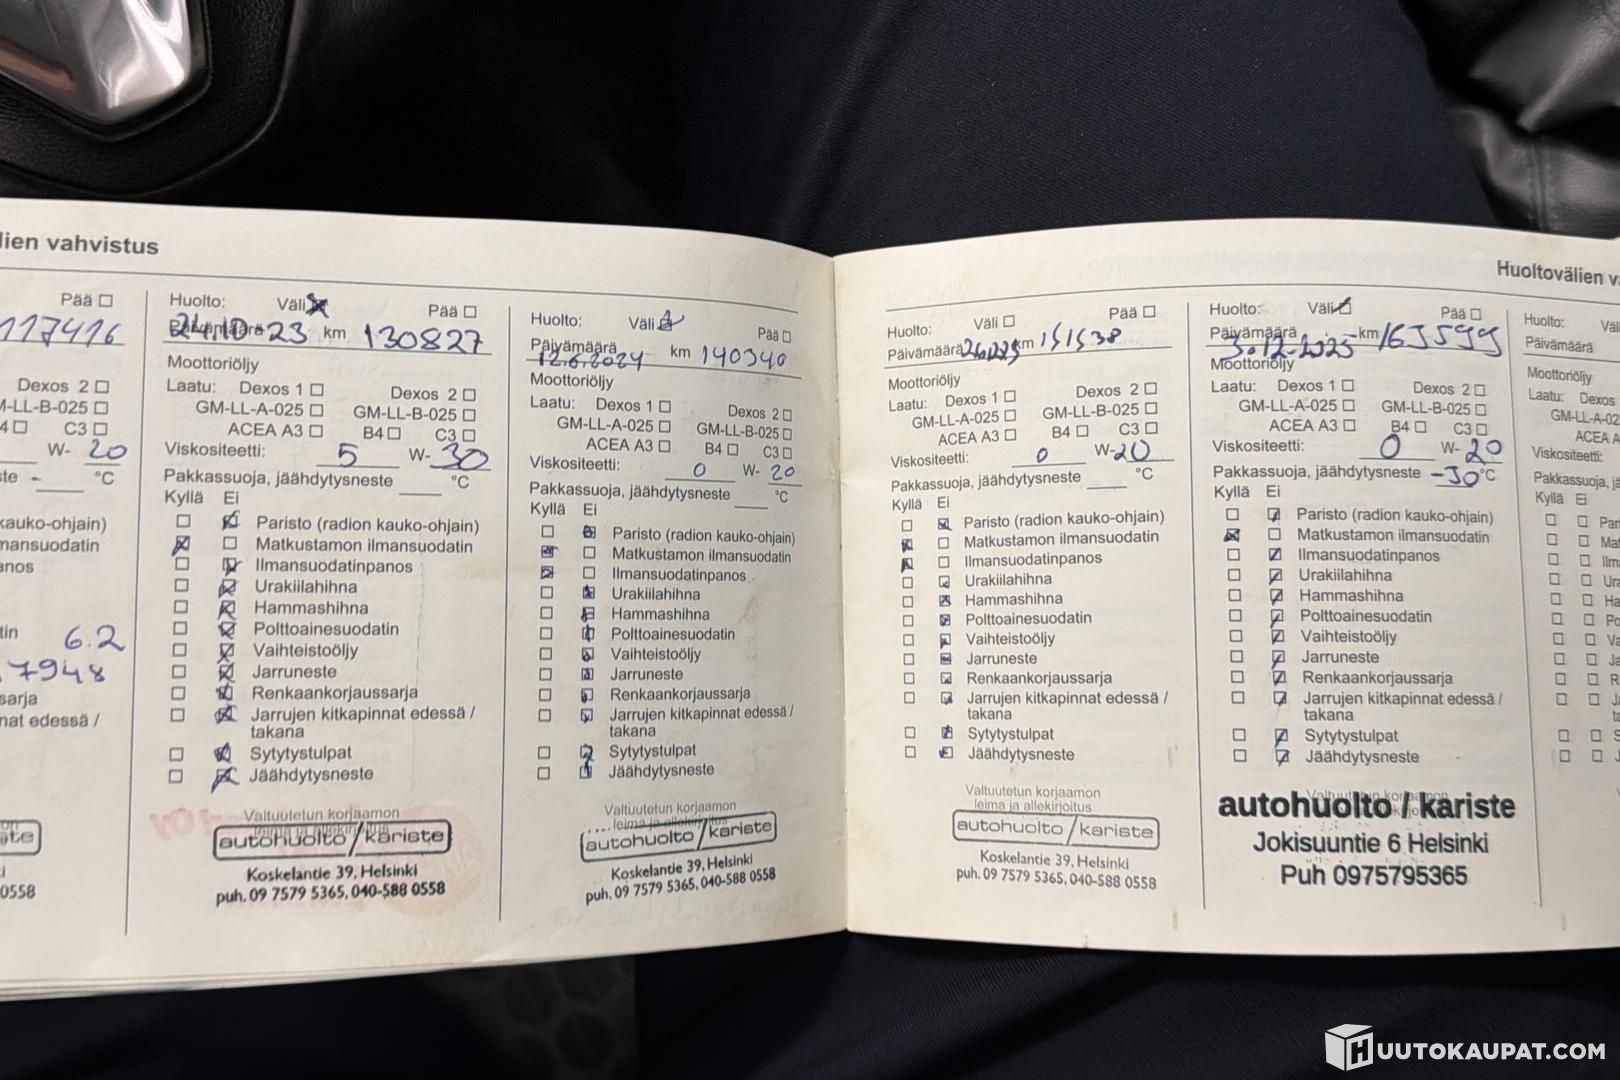 lien vahvistus
Pää
117416
Dexos 2
M-LL-B-025
C3
W- 20
°C
kauko-ohjain)
mansuodatin
anos
6.2
7948
sarja
nat edessä /
0558
Huolto: Väli Pää
Päivämäärä 24.10.23 km 130827
Moottoriöljy
Laatu: Dexos 1 Dexos 2
GM-LL-A-025 GM-LL-B-025
ACEA A3 B4 C3
Viskositeetti: 5 W- 30
Pakkassuoja, jäähdytysneste °C
Kyllä Ei
Paristo (radion kauko-ohjain)
Matkustamon ilmansuodatin
Ilmansuodatinpanos
Urakiilahihna
Hammashihna
Polttoainesuodatin
Vaihteistoöljy
Jarruneste
Renkaankorjaussarja
Jarrujen kitkapinnat edessä /
takana
Sytytystulpat
Jäähdytysneste
Valtuutetun korjaamon
leima ja allekirjoitus
autohuolto/kariste
Koskelantie 39, Helsinki
puh. 09 7579 5365, 040-588 0558
Huolto: Väli Pää
Päivämäärä 12.6.2024 km 140340
Moottoriöljy
Laatu: Dexos 1 Dexos 2
GM-LL-A-025 GM-LL-B-025
ACEA A3 B4 C3
Viskositeetti: 0 W- 20
Pakkassuoja, jäähdytysneste °C
Kyllä Ei
Paristo (radion kauko-ohjain)
Matkustamon ilmansuodatin
Ilmansuodatinpanos
Urakiilahihna
Hammashihna
Polttoainesuodatin
Vaihteistoöljy
Jarruneste
Renkaankorjaussarja
Jarrujen kitkapinnat edessä /
takana
Sytytystulpat
Jäähdytysneste
Valtuutetun korjaamon
leima ja allekirjoitus
autohuolto/kariste
Koskelantie 39, Helsinki
puh. 09 7579 5365, 040-588 0558
Huoltovälien va
Huolto: Väli Pää
Päivämäärä km 151538
Moottoriöljy
Laatu: Dexos 1 Dexos 2
GM-LL-A-025 GM-LL-B-025
ACEA A3 B4 C3
Viskositeetti: 0 W-20
Pakkassuoja, jäähdytysneste °C
Kyllä Ei
Paristo (radion kauko-ohjain)
Matkustamon ilmansuodatin
Ilmansuodatinpanos
Urakiilahihna
Hammashihna
Polttoainesuodatin
Vaihteistoöljy
Jarruneste
Renkaankorjaussarja
Jarrujen kitkapinnat edessä /
takana
Sytytystulpat
Jäähdytysneste
Valtuutetun korjaamon
leima ja allekirjoitus
autohuolto/kariste
Koskelantie 39, Helsinki
puh. 09 7579 5365, 040-588 0558
Huolto: Väli Pää
Päivämäärä 3.12.2025 km 163599
Moottoriöljy
Laatu: Dexos 1 Dexos 2
GM-LL-A-025 GM-LL-B-025
ACEA A3 B4 C3
Viskositeetti: 0 W- 20
Pakkassuoja, jäähdytysneste -30 °C
Kyllä Ei
Paristo (radion kauko-ohjain)
Matkustamon ilmansuodatin
Ilmansuodatinpanos
Urakiilahihna
Hammashihna
Polttoainesuodatin
Vaihteistoöljy
Jarruneste
Renkaankorjaussarja
Jarrujen kitkapinnat edessä /
takana
Sytytystulpat
Jäähdytysneste
autohuolto / kariste
Jokisuuntie 6 Helsinki
Puh 0975795365
Huolto:
Päivämäärä
Moottoriöljy
Laatu: Dexos
GM-LL-A-02
ACEA A
Viskositeetti:
Pakkassuoja, jä
Kyllä Ei
HUUTOKAUPAT.COM